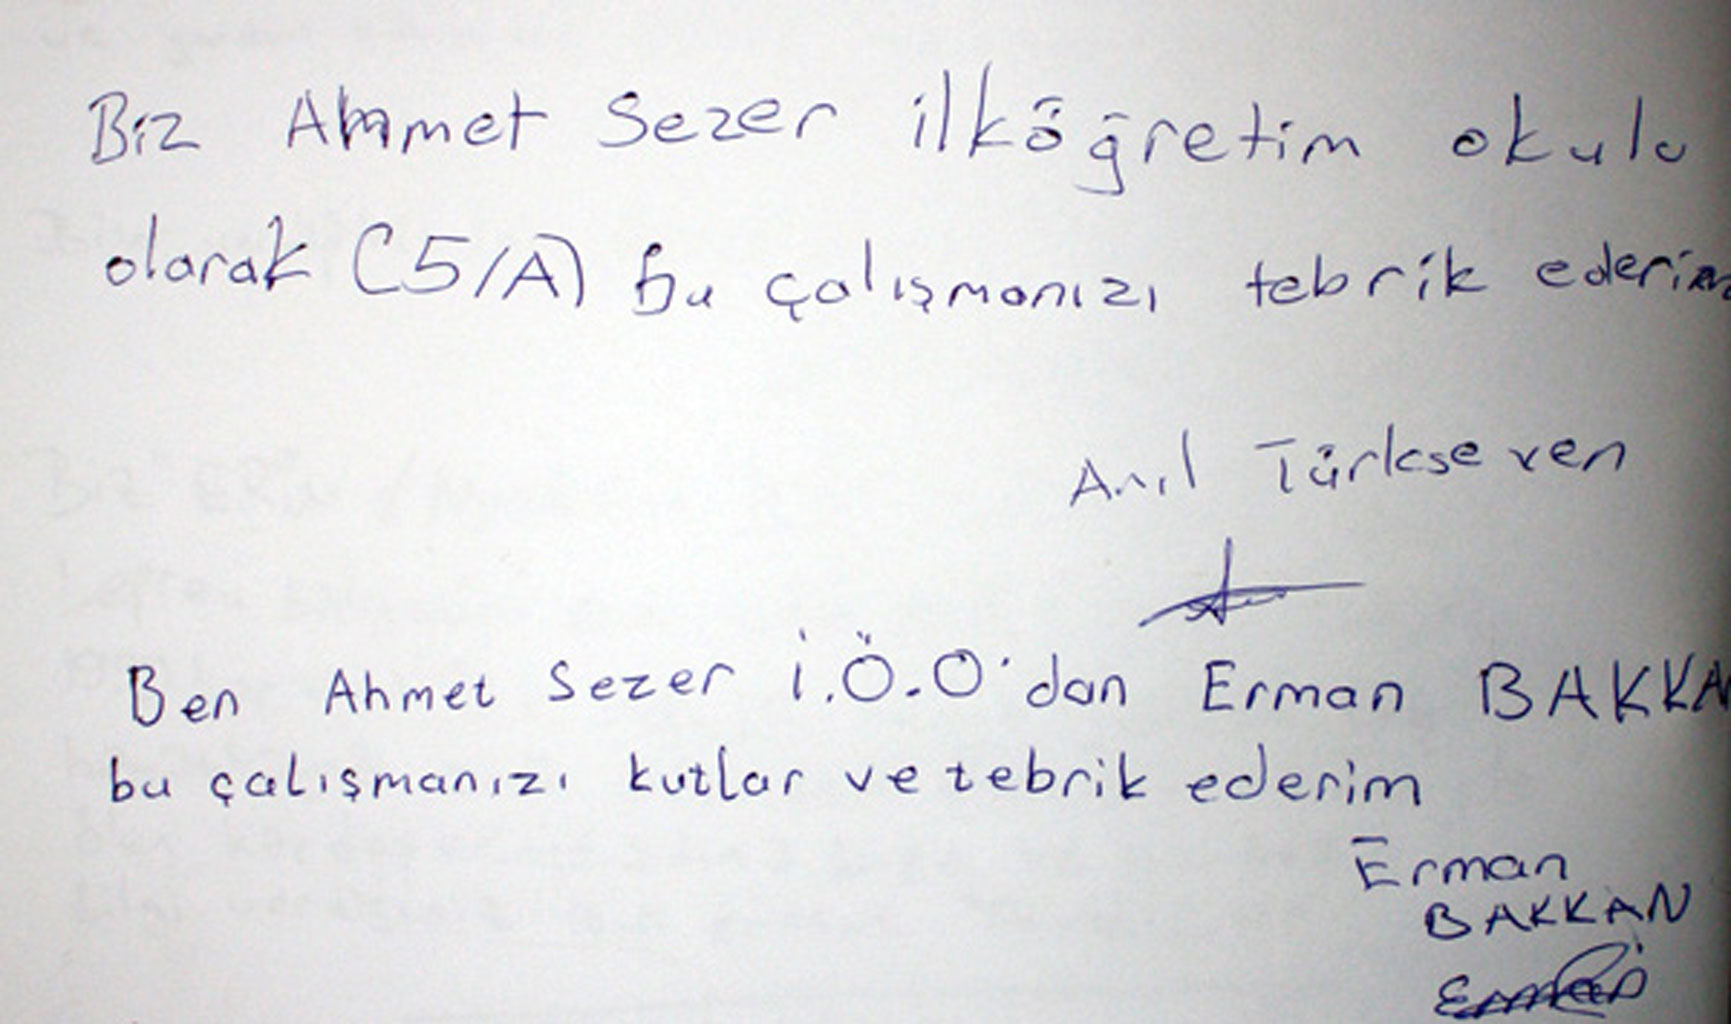 Biz Ahmet Sezer ilköğretim okulu
olarak (5/A) bu çalışmanızı tebrik ederim
Anıl Türkseven
Ben Ahmet Sezer İ.Ö.O'dan Erman BAKKA
bu çalışmanızı kutlar ve tebrik ederim
Erman
BAKKAN